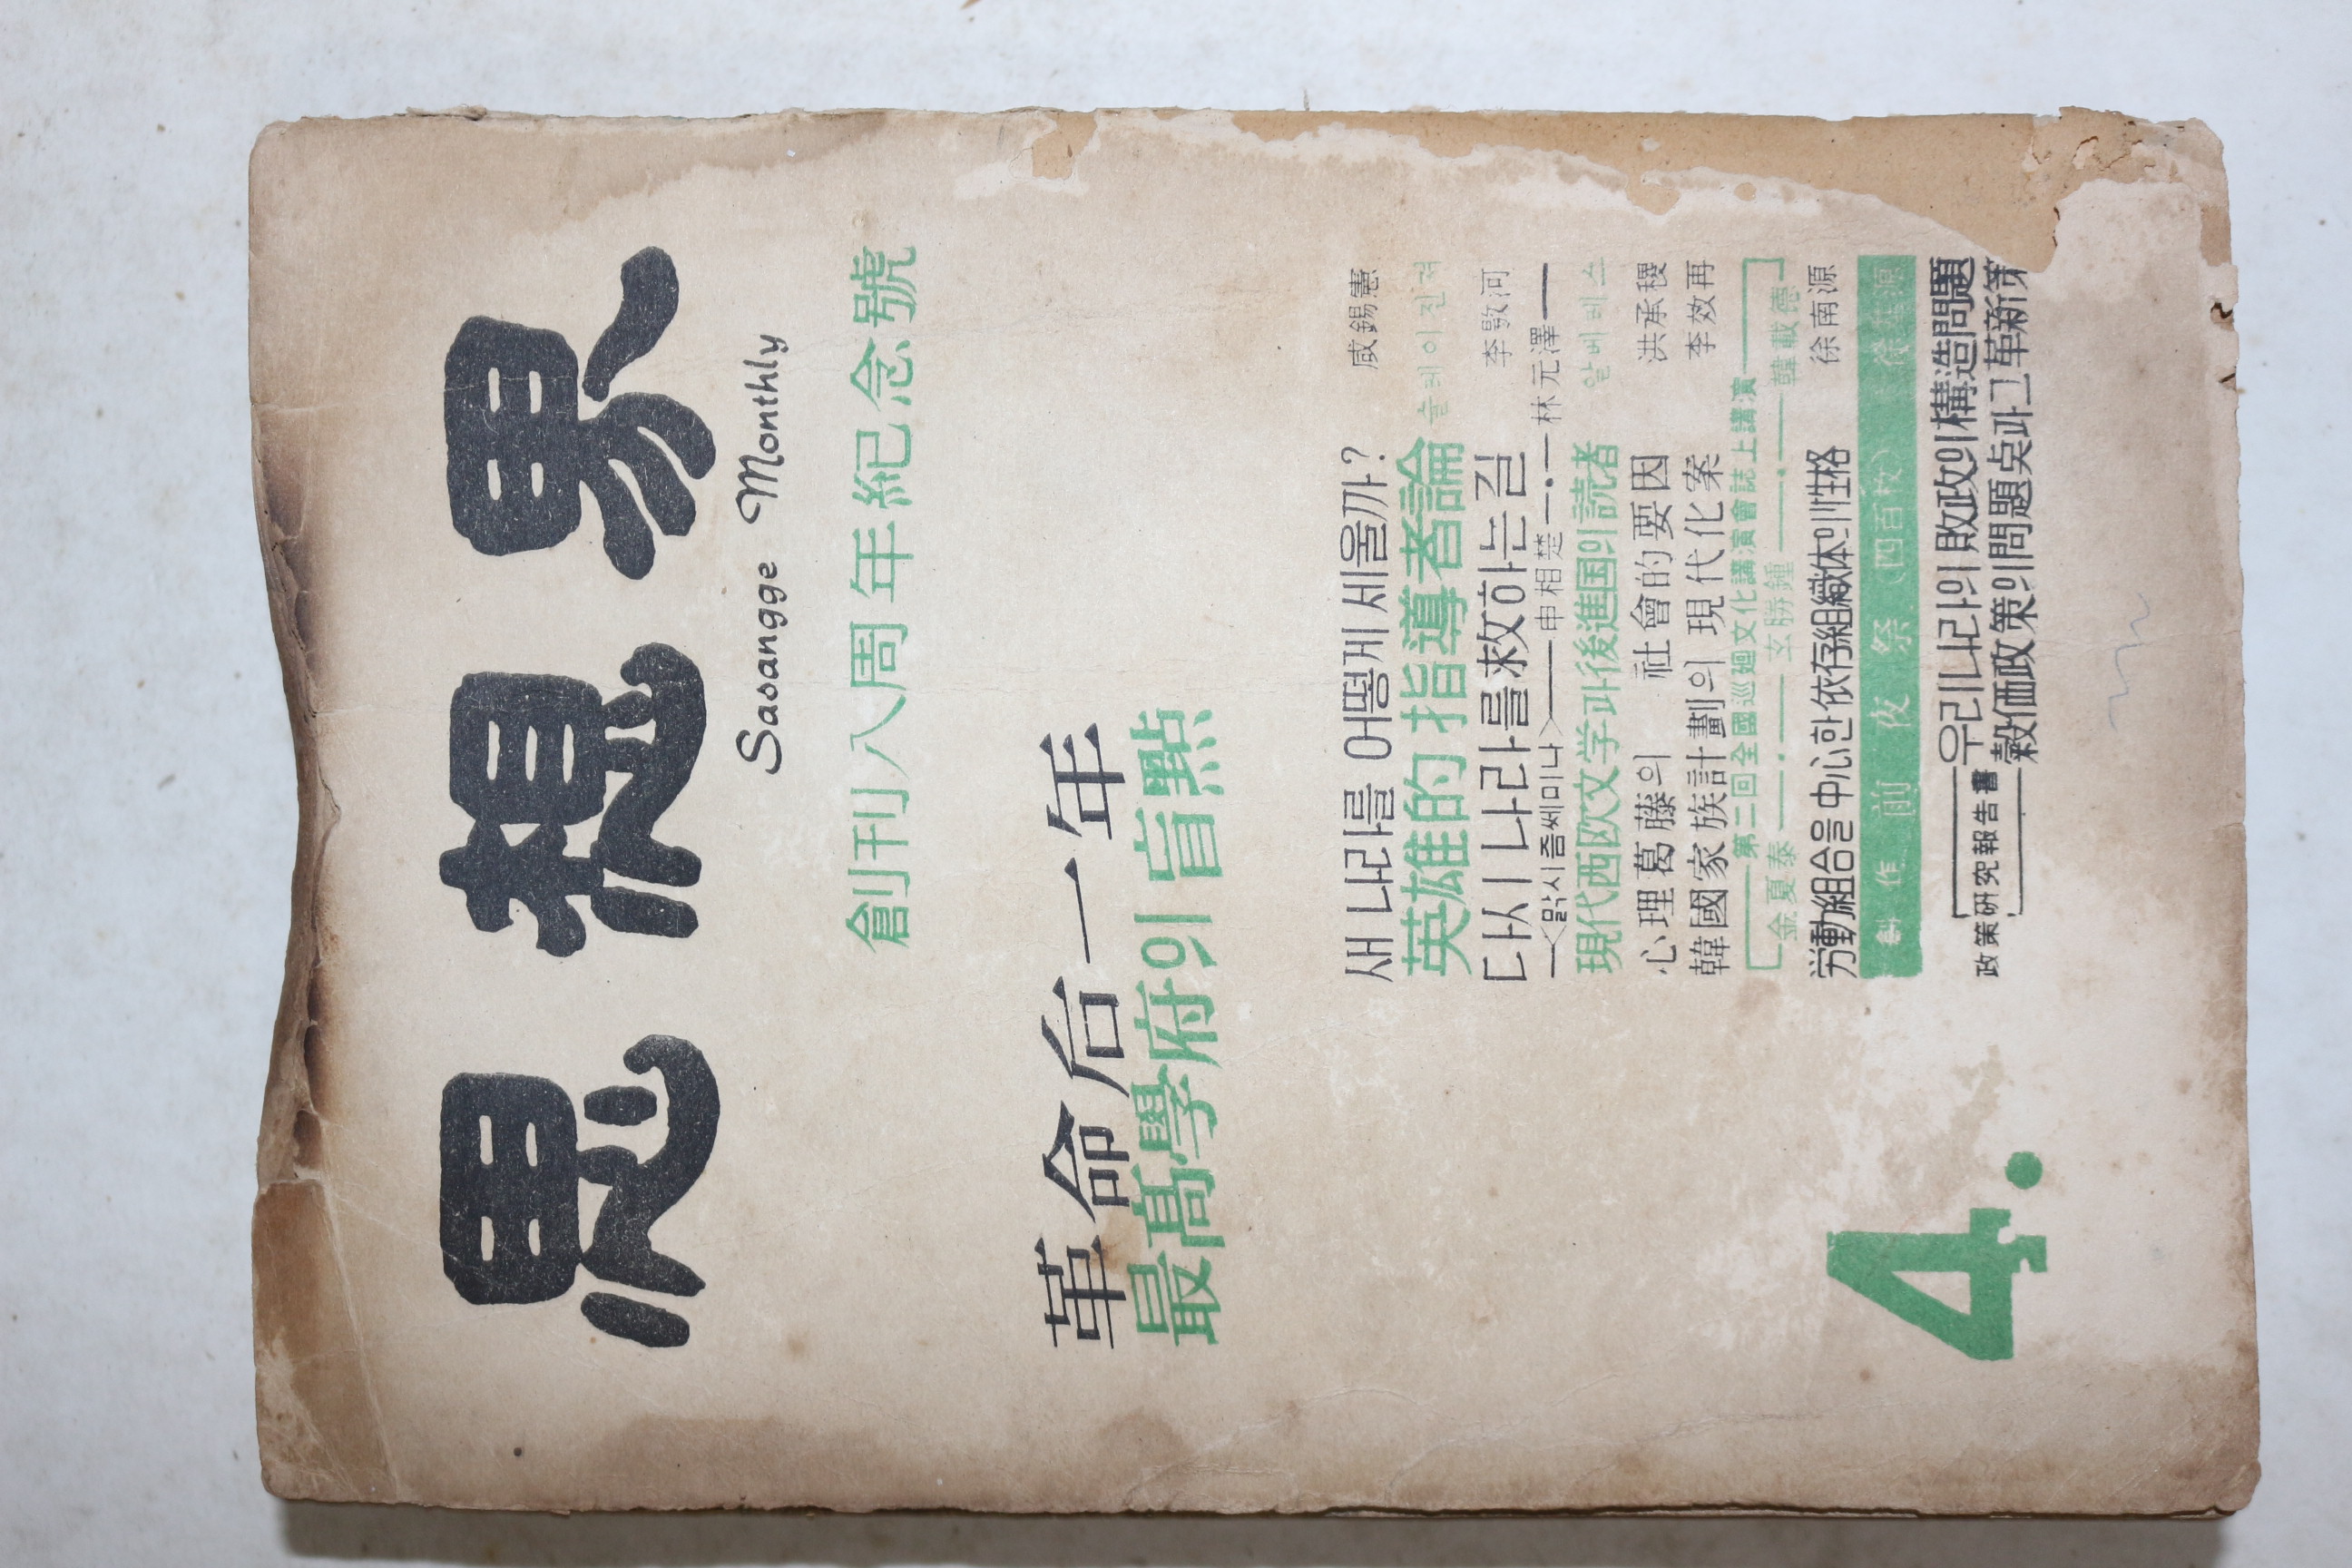 思想界
Sasangge Monthly
創刊八周年紀念號
革命后一年
最高學府의 盲點
새 나라를 어떻게 세울까? 咸錫憲
英雄的 指導者論 슐레이진저
다시 나라를 救하는 길 李敭河
<맑시즘쎄미나> 申相楚 林元澤
現代西欧文学과 後進国의 読者 알베레스
心理葛藤의 社會的 要因 洪承稷
韓國家族計劃의 現代化案 李效再
第二回全國巡廻文化講演會誌上講演
金夏泰 玄勝鍾 韓載德
労動組合을 中心한 依存組織体의 性格 徐南源
創作 前夜祭 (四百枚)
政策研究報告書
우리나라의 敗政의 構造問題
穀価政策의 問題点과 그 革新策
4.